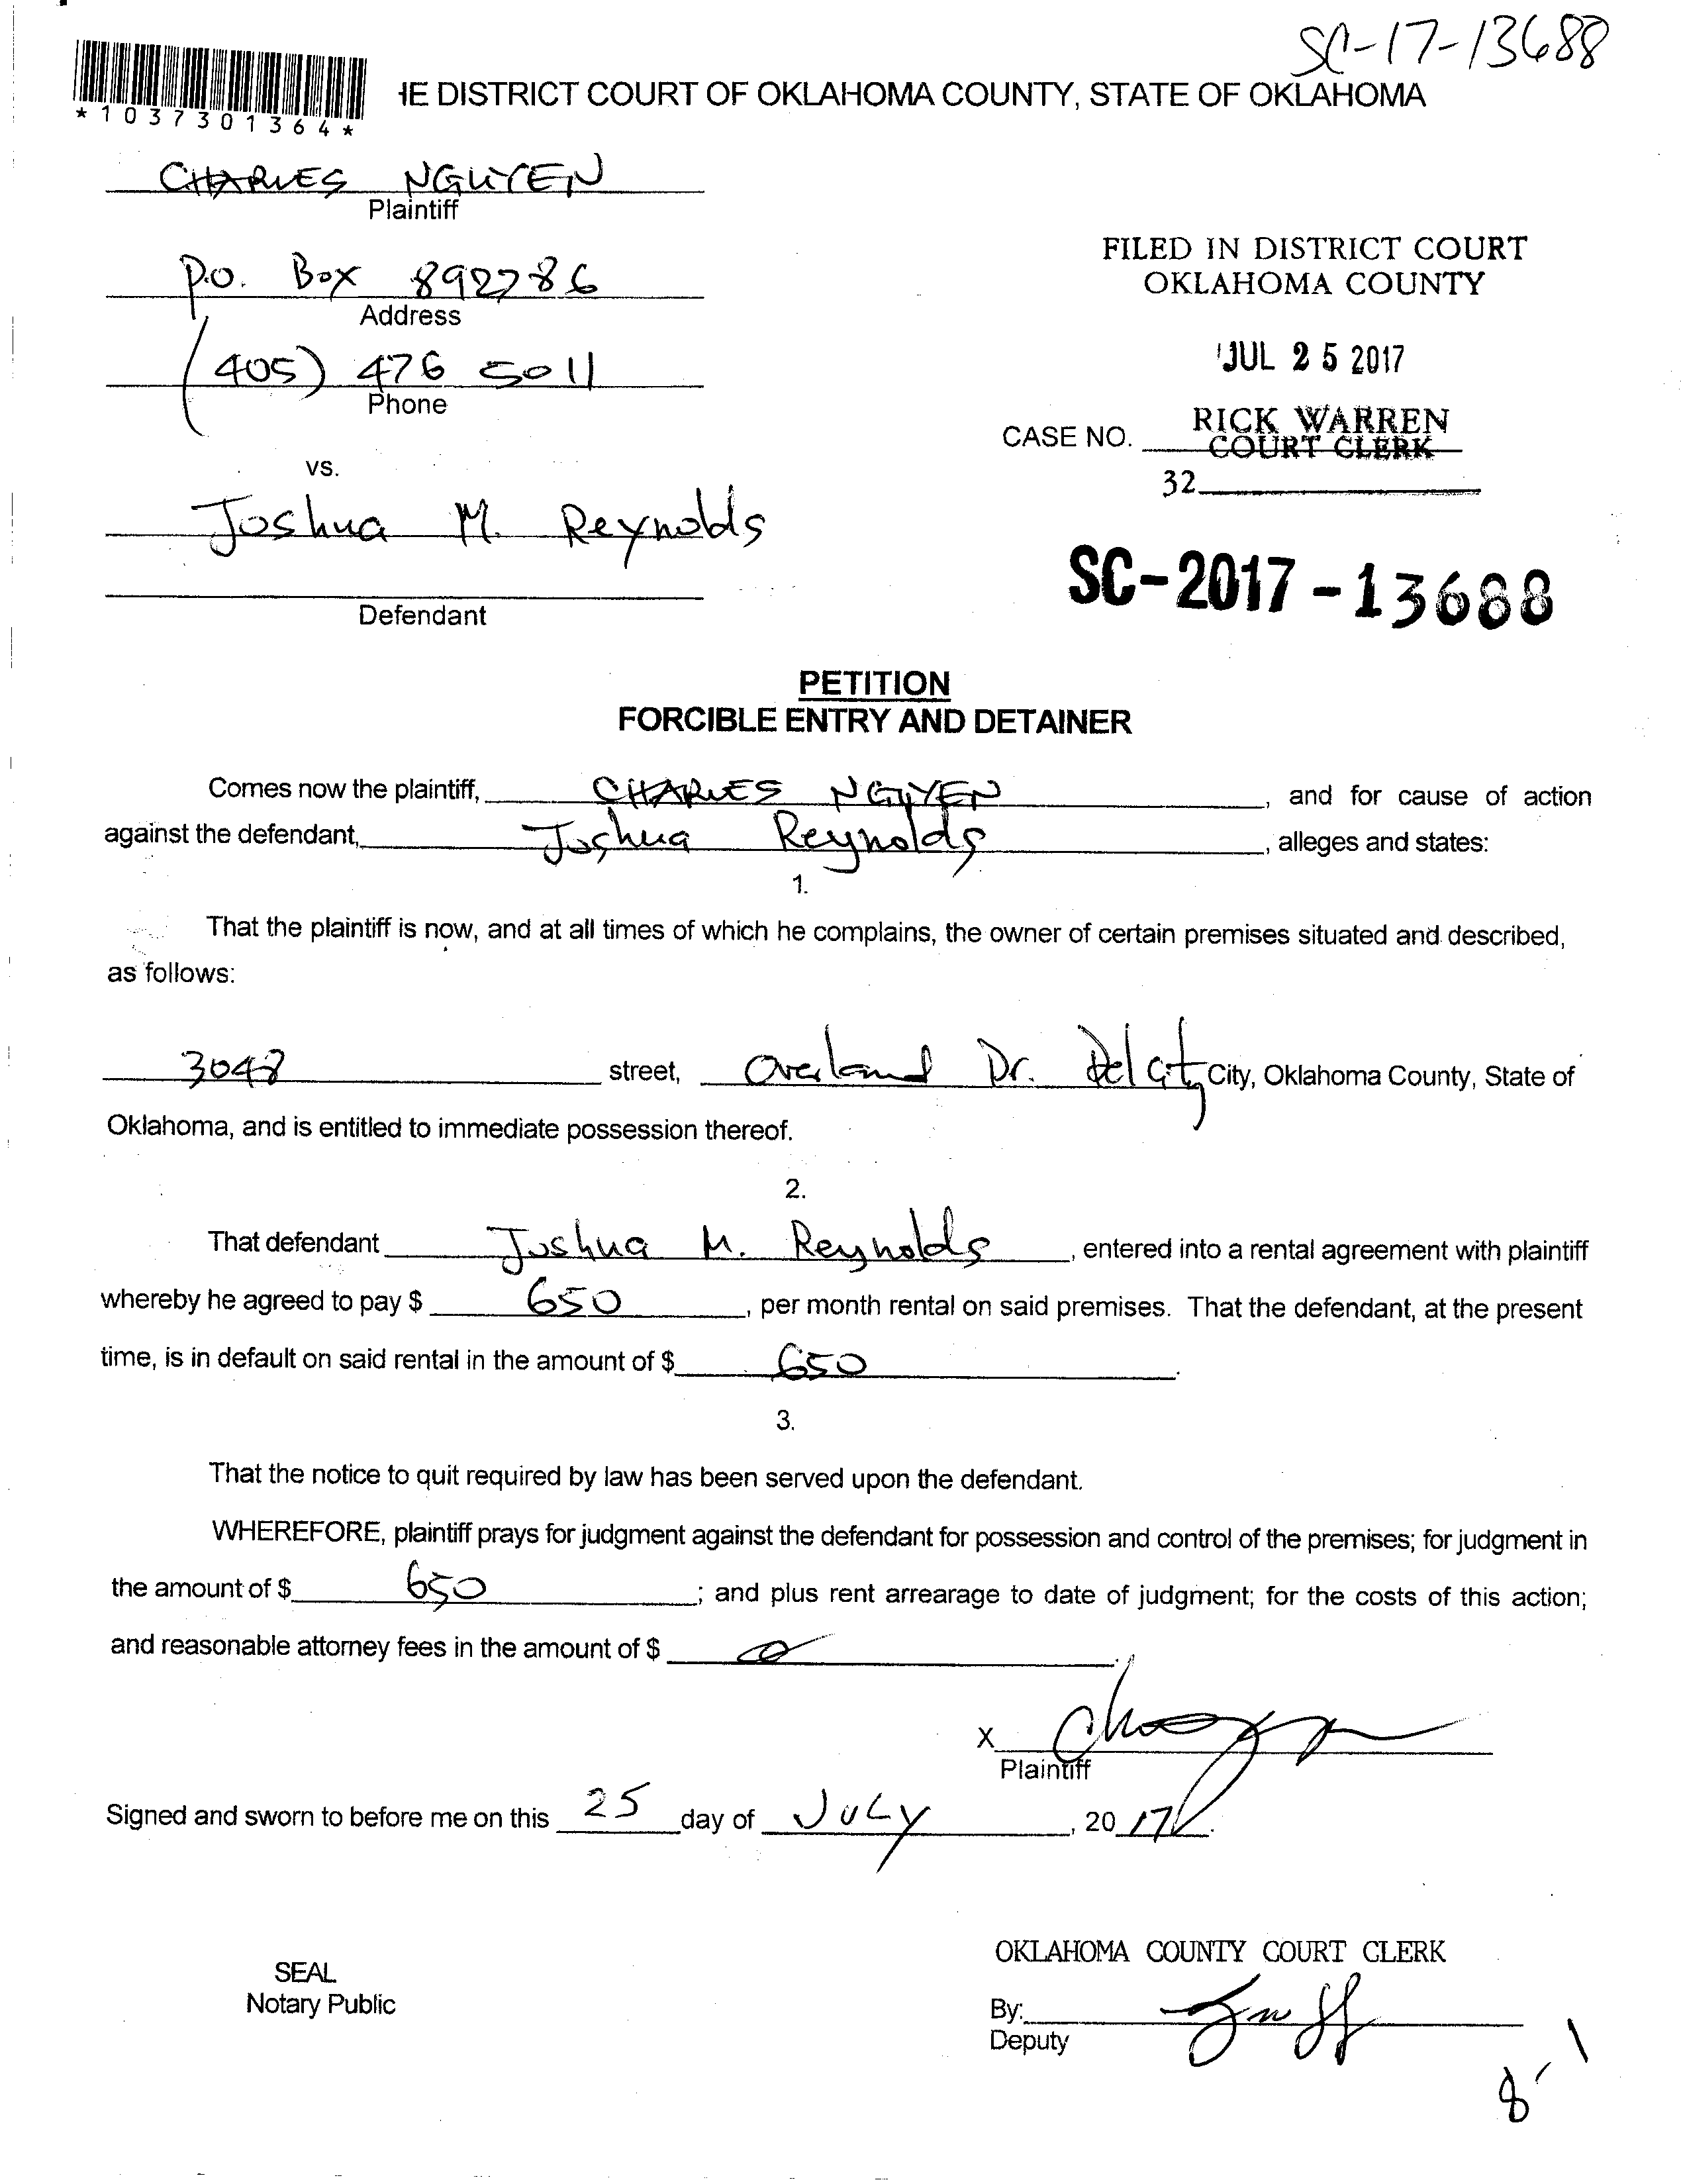 SC-17-13688
*1037301364*
HE DISTRICT COURT OF OKLAHOMA COUNTY, STATE OF OKLAHOMA
CHARLES NGUYEN
Plaintiff
P.O. Box 892786
Address
(405) 476 5011
Phone
vs.
Joshua M. Reynolds
Defendant
FILED IN DISTRICT COURT
OKLAHOMA COUNTY
JUL 25 2017
RICK WARREN
CASE NO. COURT CLERK
32
SC-2017-13688
PETITION
FORCIBLE ENTRY AND DETAINER
Comes now the plaintiff, CHARLES NGUYEN, and for cause of action
against the defendant, Joshua Reynolds, alleges and states:
1.
That the plaintiff is now, and at all times of which he complains, the owner of certain premises situated and described,
as follows:
3048 street, Overland Dr. Del City City, Oklahoma County, State of
Oklahoma, and is entitled to immediate possession thereof.
2.
That defendant Joshua M. Reynolds, entered into a rental agreement with plaintiff
whereby he agreed to pay $ 650, per month rental on said premises. That the defendant, at the present
time, is in default on said rental in the amount of $ 650.
3.
That the notice to quit required by law has been served upon the defendant.
WHEREFORE, plaintiff prays for judgment against the defendant for possession and control of the premises; for judgment in
the amount of $ 650; and plus rent arrearage to date of judgment; for the costs of this action;
and reasonable attorney fees in the amount of $
X
Plaintiff
Signed and sworn to before me on this 25 day of JULY, 2017.
SEAL
Notary Public
OKLAHOMA COUNTY COURT CLERK
By:
Deputy